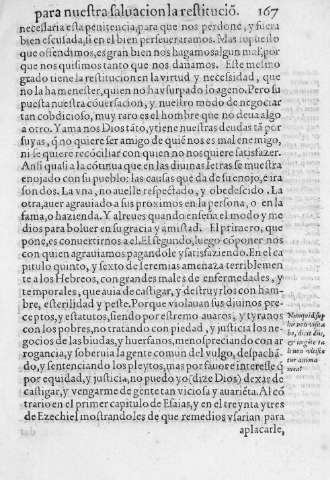 para nuestra saluacion la restitució. 167
necessaria esta penitencia, para que nos perdone, y fuera
bien escusada, si en el bien perseueraramos. Mas supuesto
que ofendimos, es gran bien nos hagamos algun mal, por
que nos quisimos tanto que nos dañamos. Este mesmo
grado tiene la restitucion en la virtud y necessidad, que
no la ha menester, quien no hay surpado lo ageno. Pero su
puesta nuestra cóuersacion, y nuestro modo de negociar
tan cobdicioso, muy raro es el hombre que no deua algo
a otro. Y ama nos Dios táto, y tiene nuestras deudas tá por
suyas, q̃ no quiere ser amigo de quié nos es mal enemigo,
ni se quiere recóciliar con quien no nos quiere satisfazer.
Ansi qual a la cótinua que en las diuinas letras se muestra
enojado con su pueblo: las causas que da de su enojo, e ira
son dos. La vna, no auelle respectado, y obedescido. La
otra, auer agrauiado a sus proximos en la persona, o en la
fama, o hazienda. Y al reues quando enseña el modo y me
dios para boluer en su gracia y amistad. El primero, que
pone, es conuertirnos a el. El segundo, luego cóponer nos
con quien agrauiamos pagandole y satisfaziendo. En el ca
pitulo quinto, y sexto de Ieremias amenaza terriblemen
te a los Hebreos, con grandes males de enfermedades, y
temporales, que auia de castigar, y destruylos con ham-
bre, esterilidad y peste. Porque violauan sus diuinos pre-
ceptos, y estatutos, siendo por estremo auaros, y tyranos
con los pobres, no tratando con piedad, y justicia los ne-
gocios de las biudas, y huerfanos, menospreciando con ar
rogancia, y soberuia la gente comun del vulgo, despachá-
do, y sentenciando los pleytos, mas por fauor e interesse q̃
por equidad, y justicia, no puedo yo (dize Dios) dexar de
castigar, y vengarme de gente tan viciosa y auariéta. Al có
trario en el primer capitulo de Esaias, y en el treynta y tres
de Ezechiel mostrandoles de que remedios vsarian para
aplacarle,
Nunquid sup
dicit dñs,